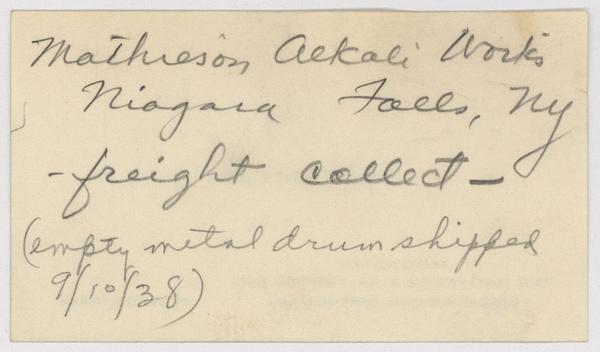 Mathieson Alkali Works
Niagara Falls, NY
- freight collect -
(empty metal drum shipped
9/10/38)